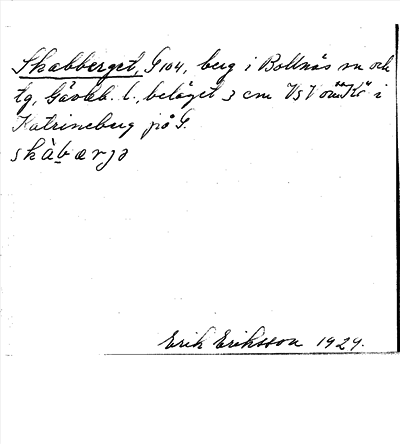 Skabberget, G 104, berg i Bollnäs sn och
tg, Gävleb. l., beläget 3 cm VsV om "Kä" i
Katrineberg på G.
skàbærjə
Erik Eriksson 1929.